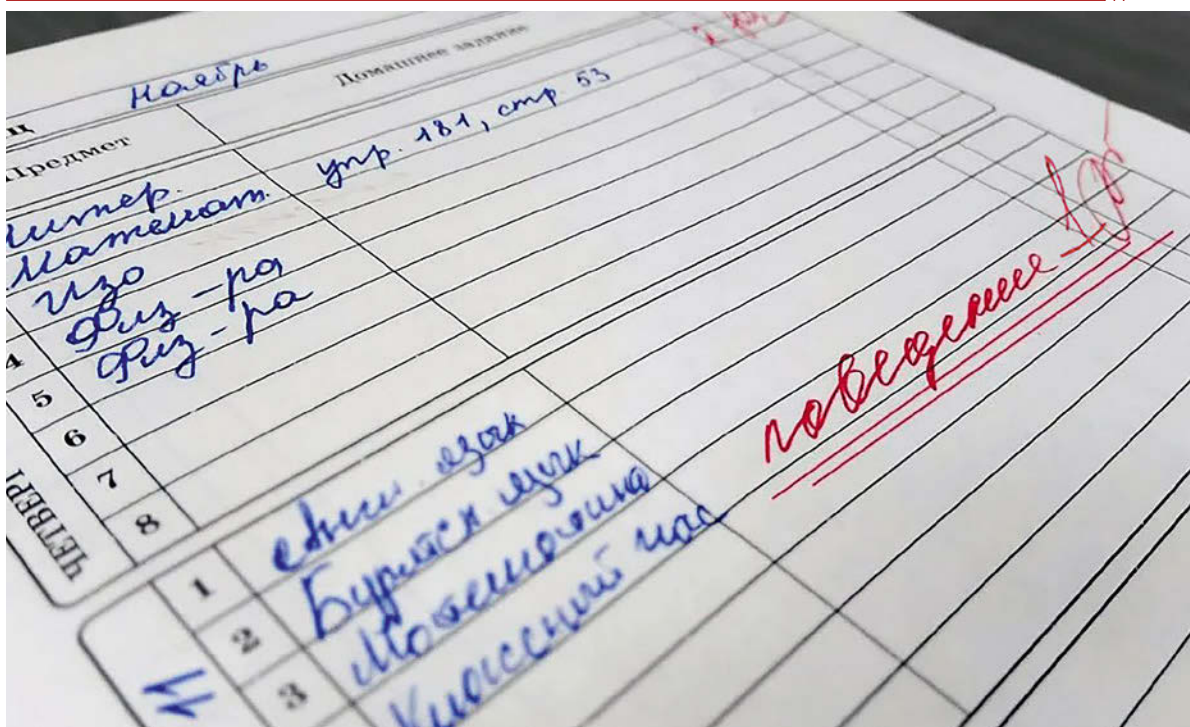 Ноябрь
Предмет Домашнее задание
Литер.
Математ. упр. 181, стр 53
Изо
4 Физ-ра
5 Физ-ра
6
7
8
ЧЕТВЕРГ
поведение
1 Англ. язык
2 Бурятск. язык
3 Математика
Классный час